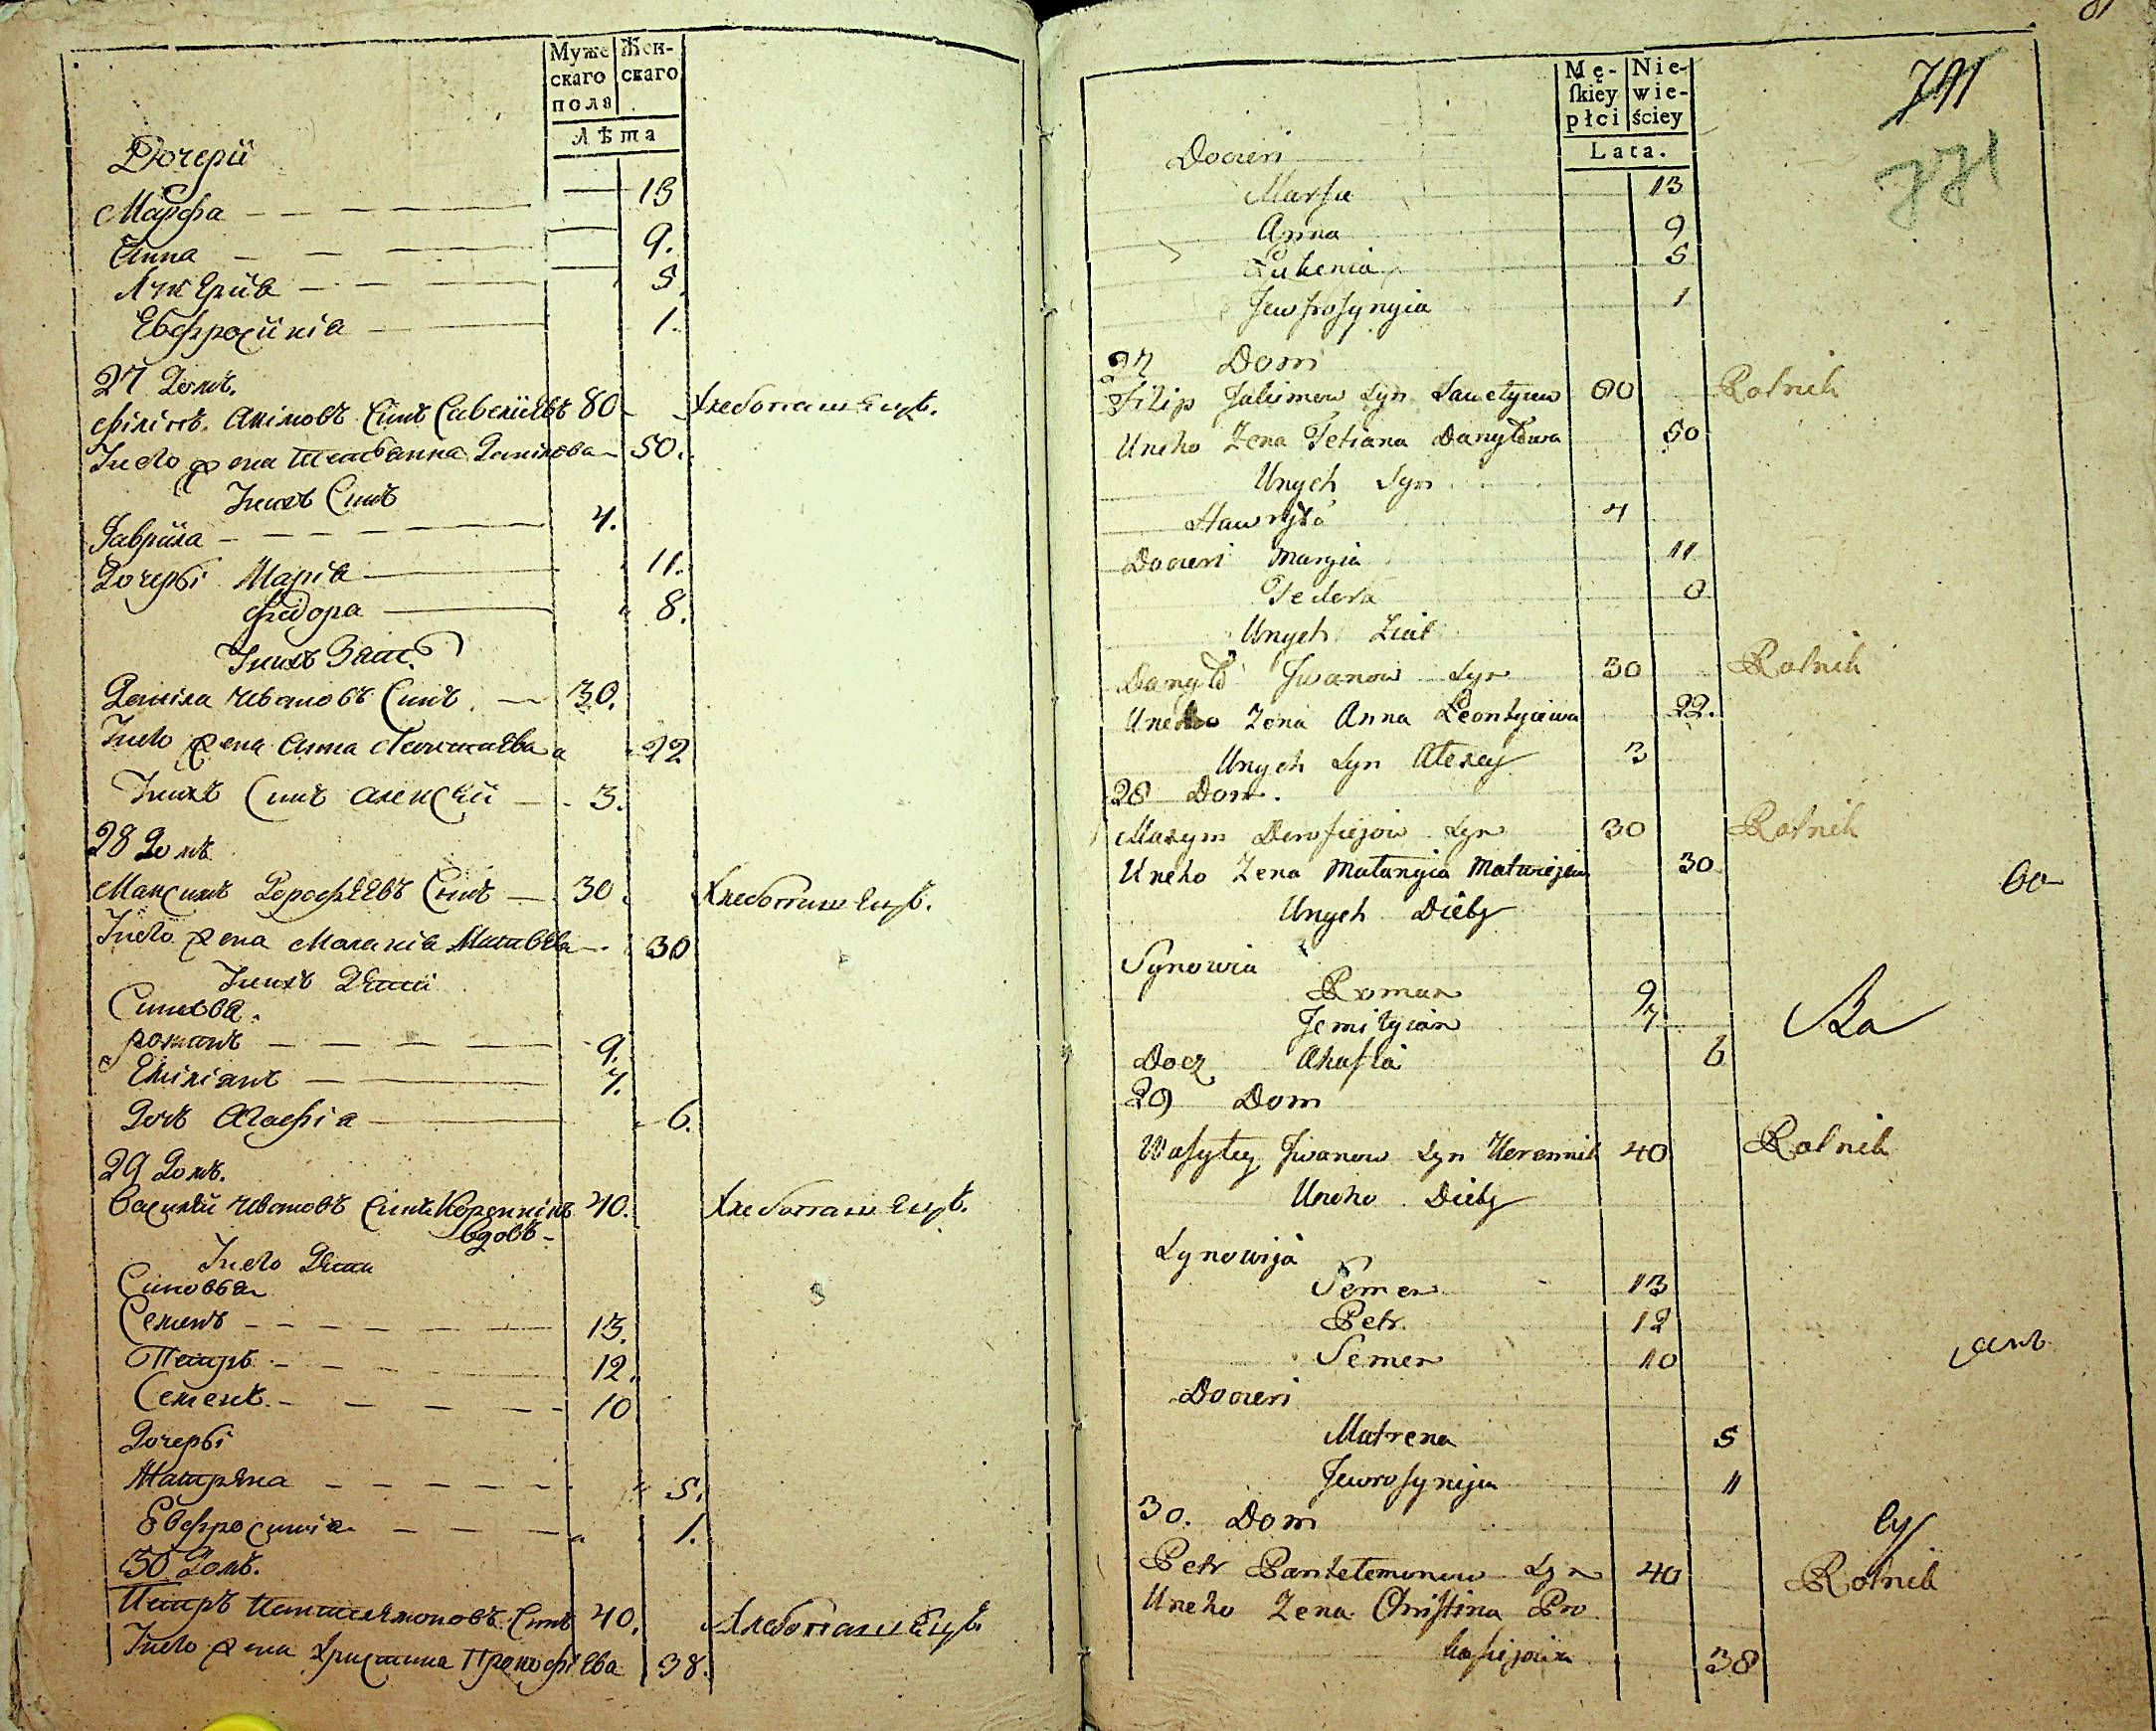 Муже
скаго
пола
Жен-
скаго
Лѣта
Дочерїи
Марфа 13
Анна 9.
5.
Евфросинія 1.
27 Домъ.
Филіпъ Акімовъ Синъ Савеліевъ 80 Хлебопашецъ.
Унево жена Татіанна Данілова 50.
Унихъ Синъ
Гаврила 4.
Дочерѣ Марія 11.
Федора 8.
Унихъ Зать
Даніла Ивановъ Синъ 30.
Унево жена Анна Леонтиева 22
Унихъ Синъ Алексѣй 3.
28 Домъ
Максимъ Дорофѣевъ Синъ 30. Хлебопашецъ.
Унево жена Маланія Матвѣева 30
Унихъ Дѣти
Синовья.
Романъ 9.
Емиліанъ 7.
Дочь Агафія 6.
29 Домъ.
Василий Ивановъ Синъ Коренникъ 40. Хлебопашецъ.
вдовъ
Унево Дѣти
Синовья
Семенъ 13.
Петръ 12.
Семенъ 10
Дочерѣ
Матрена 5.
Евфросинія 1.
30 Домъ.
Петръ Пантелемоновъ Синъ 40. Хлебопашецъ
Унево жена Христина Прокофіева 38.
Mę-
skiey
płci
Nie-
wie-
ściey
Lata.
791
771
Doczeri
Marfa 13
Anna 9
Lukenia 5
Jewfrosynyia 1
27 Dom
Filip Jakimow Syn Sawelyiew 80 Rolnik
Uneho Zena Tetiana Danyłowa 50
Unych Syn
Hawryło 4
Doczeri Maryia 11
Fedora 8
Unych Ziat
Danyło Jwanow Syn 30 Rolnik
Uneho Zena Anna Leontyiewa 22.
Unych Syn Alexey 3
28 Dom.
Maxym Dorofiejow Syn 30 Rolnik
Uneho Zena Malanyia Matwiejewa 30
Unych Diety
Synowia
Roman 9
Jemilyian 7
Docz Ahafia 6
29 Dom
Wasyley Jwanow Syn Korennik 40 Rolnik
Uneho Diety
Synowija
Semen 13
Petr 12
Semen 10
Doczeri
Matrena 5
Jewrosynija 1
30. Dom
Petr Pantelemonow Syn 40 Rolnik
Uneho Zena Christina Pro
kofiejowa 38